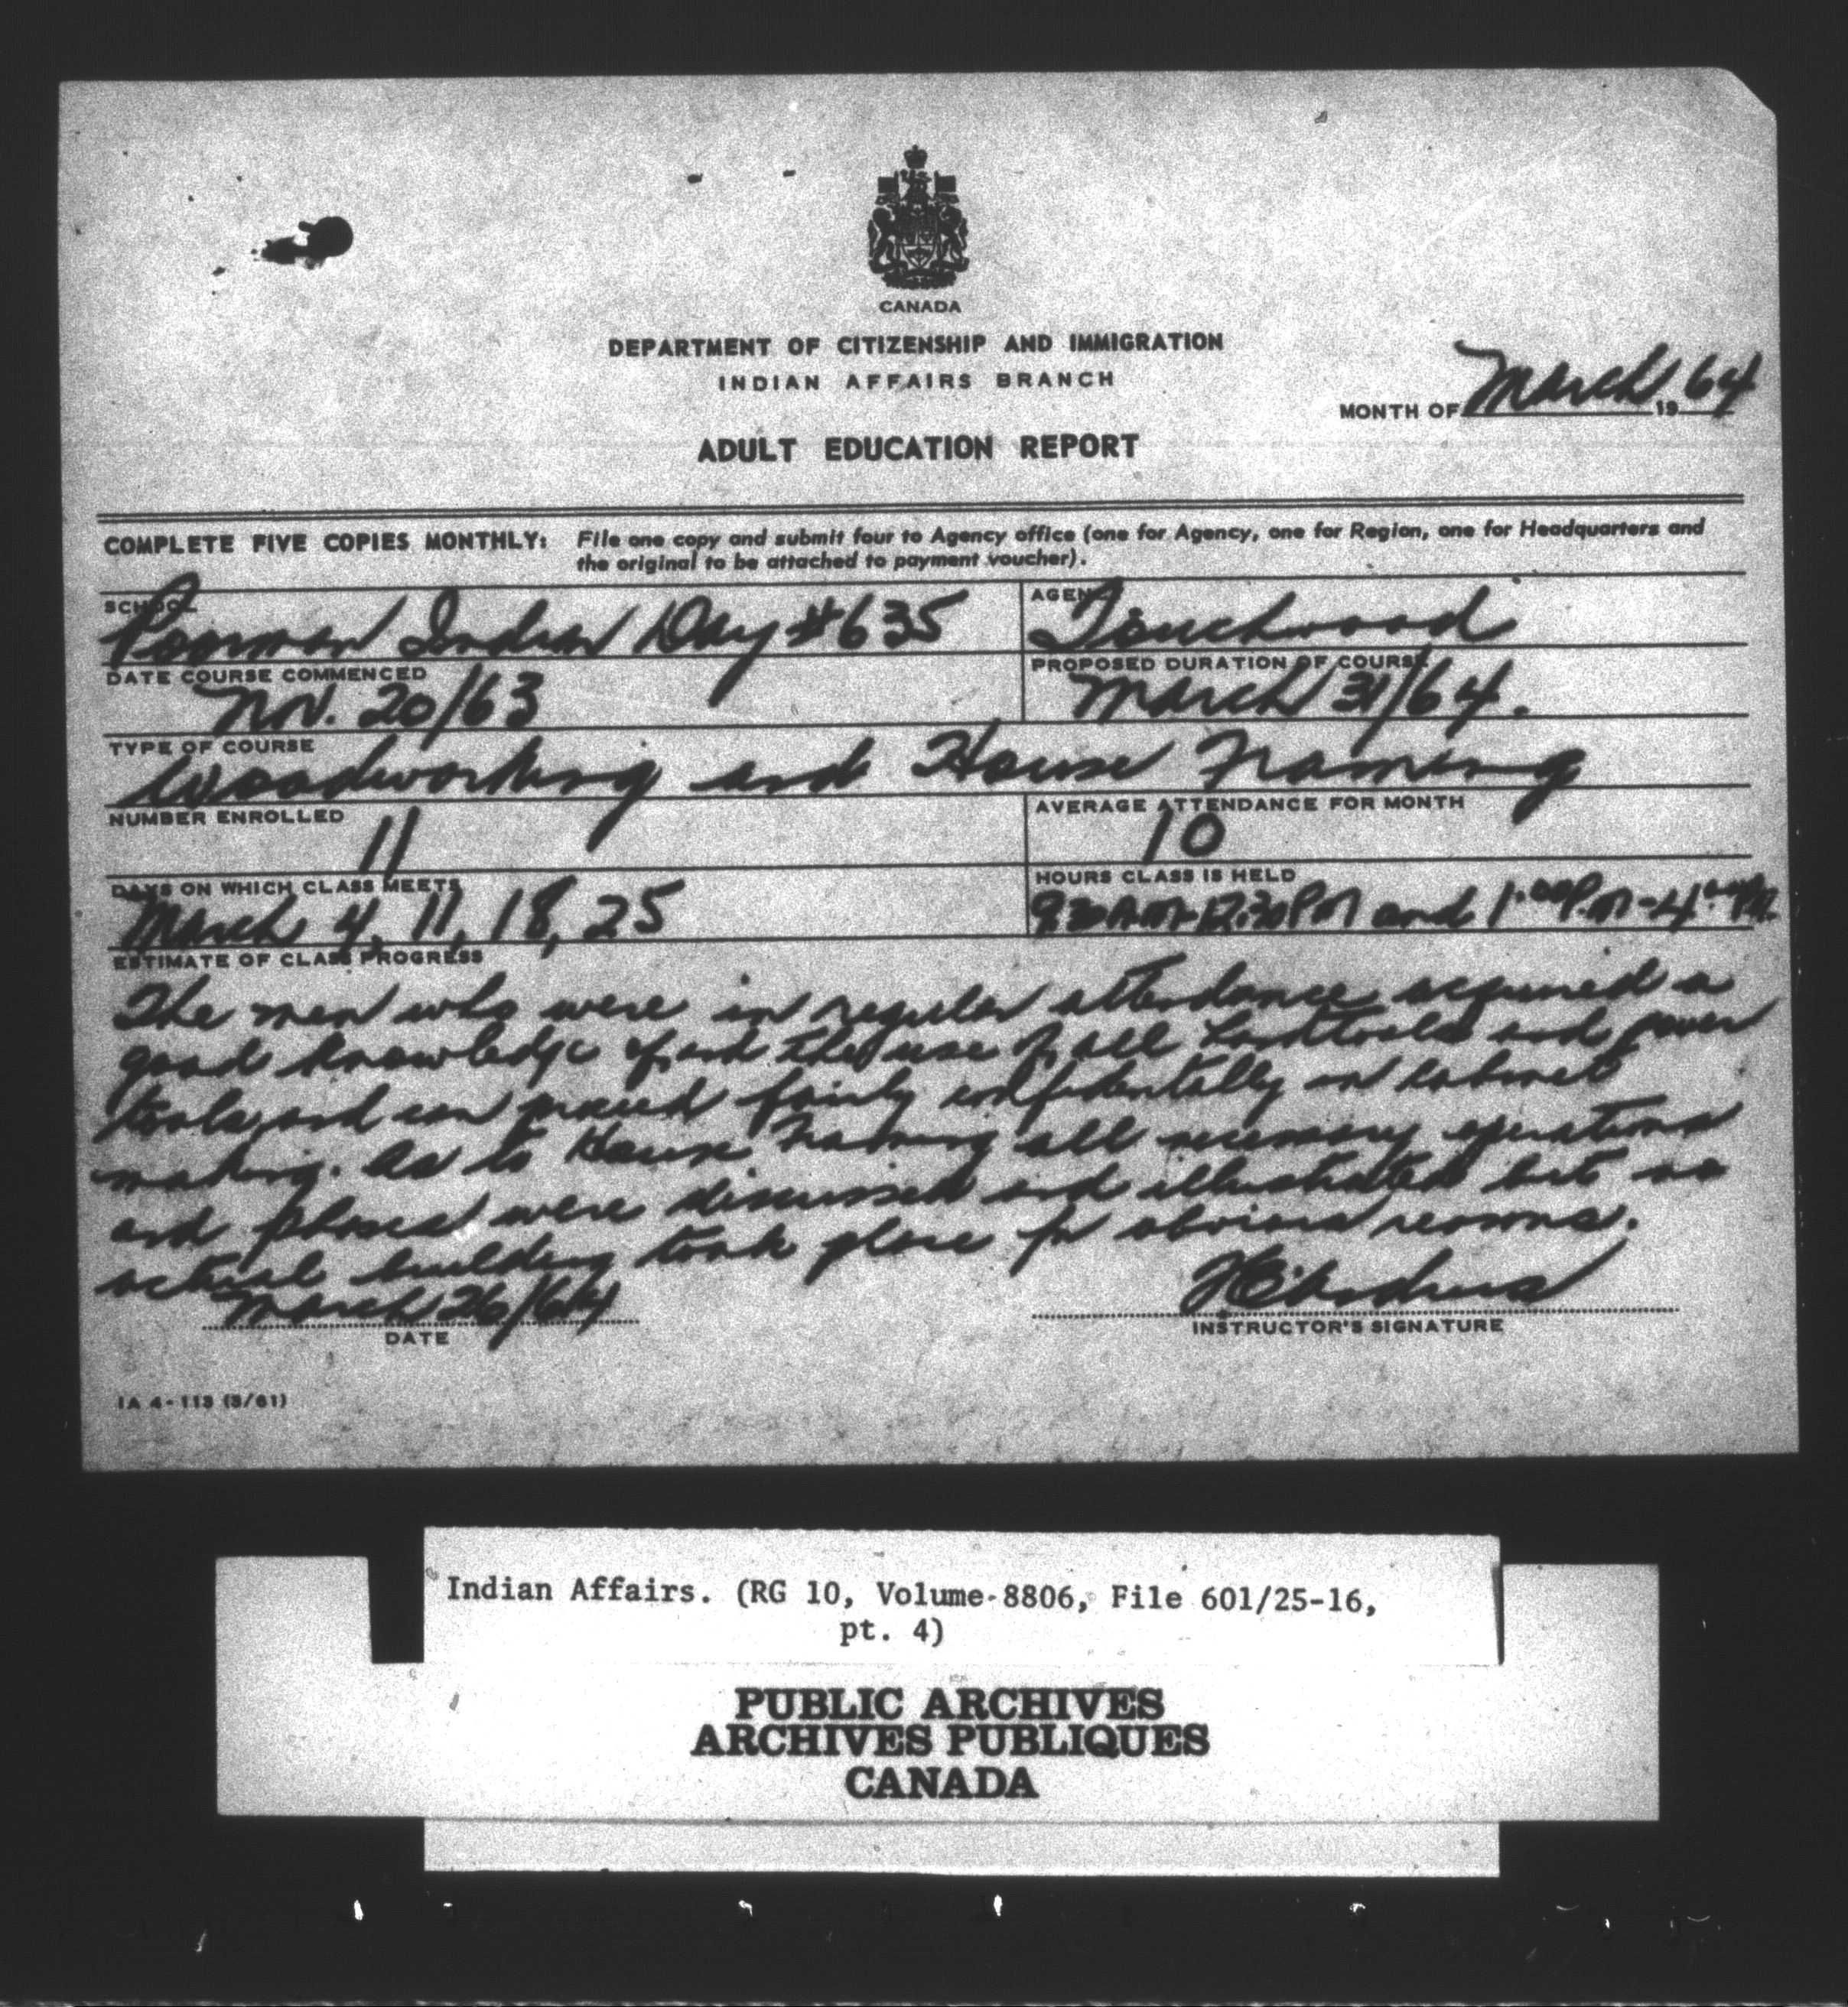 CANADA
DEPARTMENT OF CITIZENSHIP AND IMMIGRATION
INDIAN AFFAIRS BRANCH
MONTH OF March 1964
ADULT EDUCATION REPORT
COMPLETE FIVE COPIES MONTHLY: File one copy and submit four to Agency office (one for Agency, one for Region, one for Headquarters and
the original to be attached to payment voucher).
SCHOOL AGENCY
Poorman Indian Day #635 Touchwood
DATE COURSE COMMENCED PROPOSED DURATION OF COURSE
Nov. 20/63 March 31/64.
TYPE OF COURSE
Woodworking and House Framing
NUMBER ENROLLED AVERAGE ATTENDANCE FOR MONTH
11 10
DAYS ON WHICH CLASS MEETS HOURS CLASS IS HELD
March 4, 11, 18, 25 9.30 A.M-12.30 PM and 1.00 P.M-4.00 P.M.
ESTIMATE OF CLASS PROGRESS
The men who were in regular attendance acquired a
good knowledge of, and the use of, all handtools and power
tools, and can proceed fairly confidentally in cabinet
making. As to House Framing all necessary operations
and phases were discussed and illustrated but no
actual building took place for obvious reasons.
March 26/64
DATE INSTRUCTOR'S SIGNATURE
IA 4-113 (3/61)
Indian Affairs. (RG 10, Volume 8806, File 601/25-16,
pt. 4)
PUBLIC ARCHIVES
ARCHIVES PUBLIQUES
CANADA